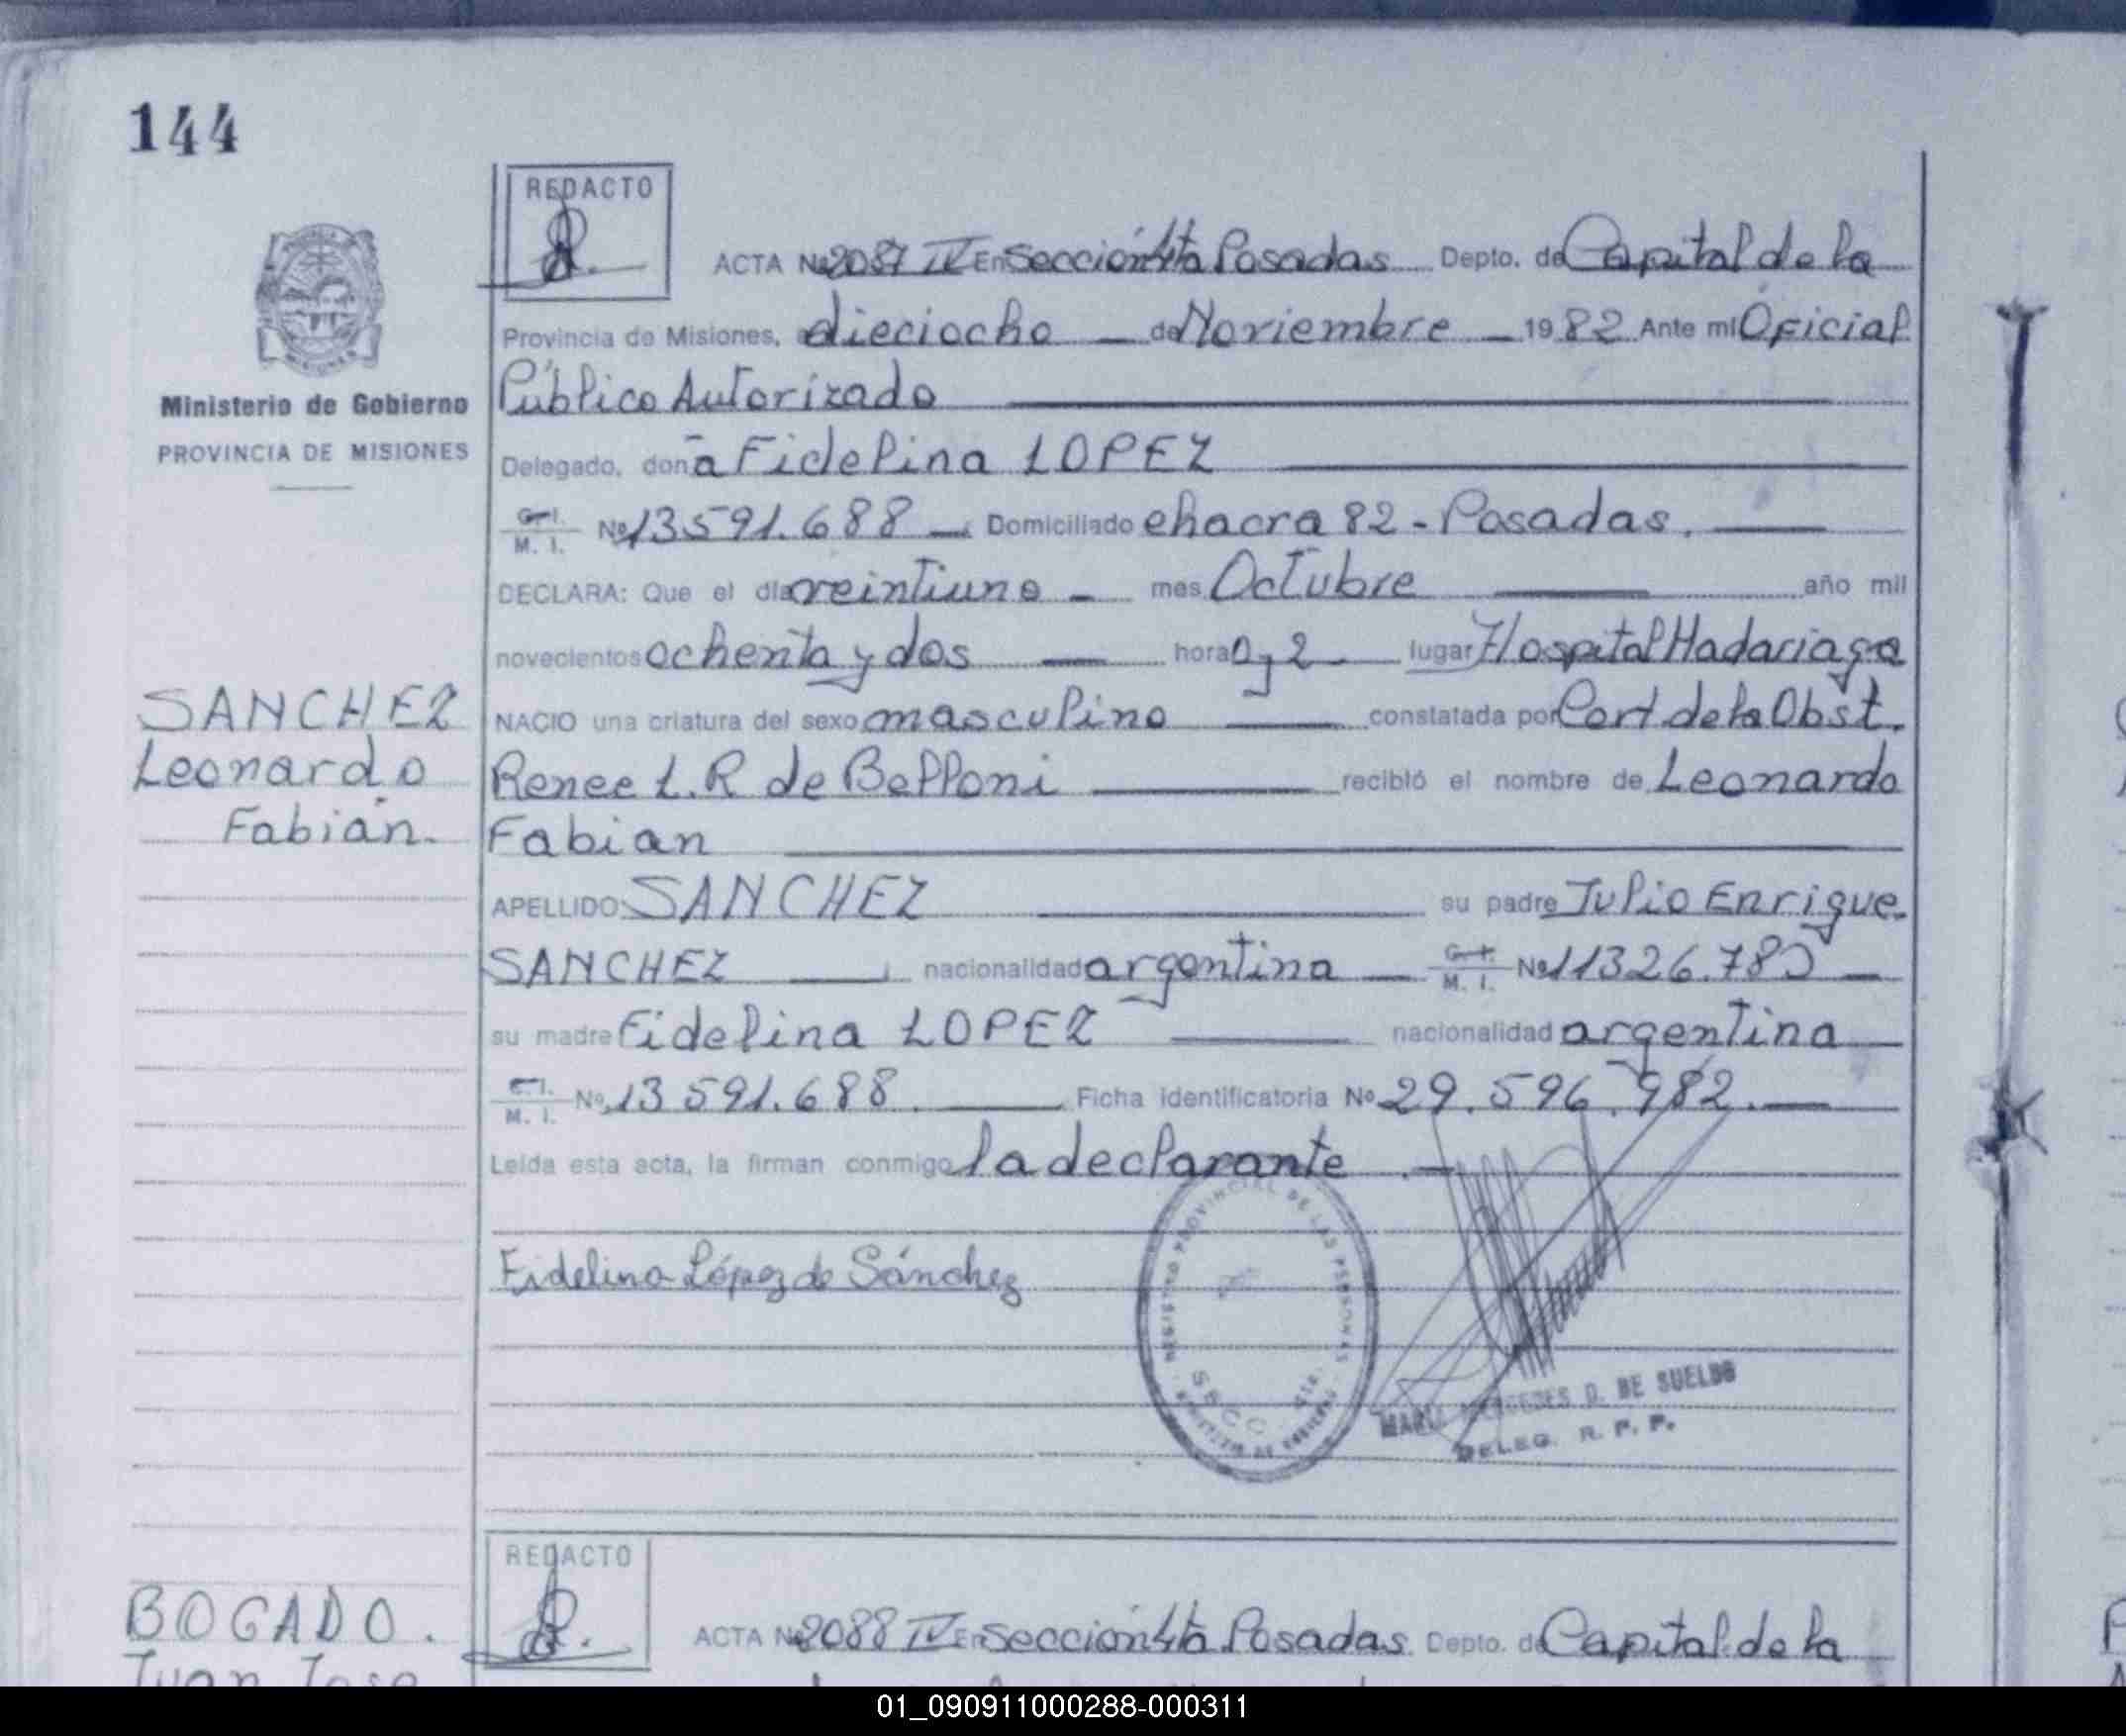 144
REDACTO
ACTA Nº 2087 IV En Sección 4ta Posadas Depto. de Capital de la
Provincia de Misiones, a dieciocho de Noviembre 1982 Ante mi Oficial
Ministerio de Gobierno
Público Autorizado
PROVINCIA DE MISIONES
Delegado, doña Fidelina LOPEZ
C.I. M. I. Nº 13591.688 Domiciliado chacra 82 - Posadas.
DECLARA: Que el día veintiuno mes Octubre año mil
novecientos ochenta y dos hora 0 y 2 lugar Hospital Madariaga
SANCHEZ
NACIO una criatura del sexo masculino constatada por Cert de la Obst.
Leonardo
Renee L.R de Belloni recibió el nombre de Leonardo
Fabián.
Fabian
APELLIDO SANCHEZ su padre Julio Enrique
SANCHEZ nacionalidad argentina C.I. M. I. Nº
su madre Fidelina LOPEZ nacionalidad argentina
C.I. M. I. Nº 13591.688 Ficha identificatoria Nº 29.596.982.
Leída esta acta, la firman conmigo la declarante.
REGISTRO PROVINCIAL DE LAS PERSONAS
SECC. 4ta.
MINISTERIO DE GOBIERNO
Fidelina López de Sánchez
MARIA MERCEDES D. DE SUELDO
DELEG. R. P. P.
REDACTO
BOGADO.
ACTA Nº 2088 IV En Sección 4ta Posadas Depto. de Capital de la
Juan Jose
01_090911000288-000311